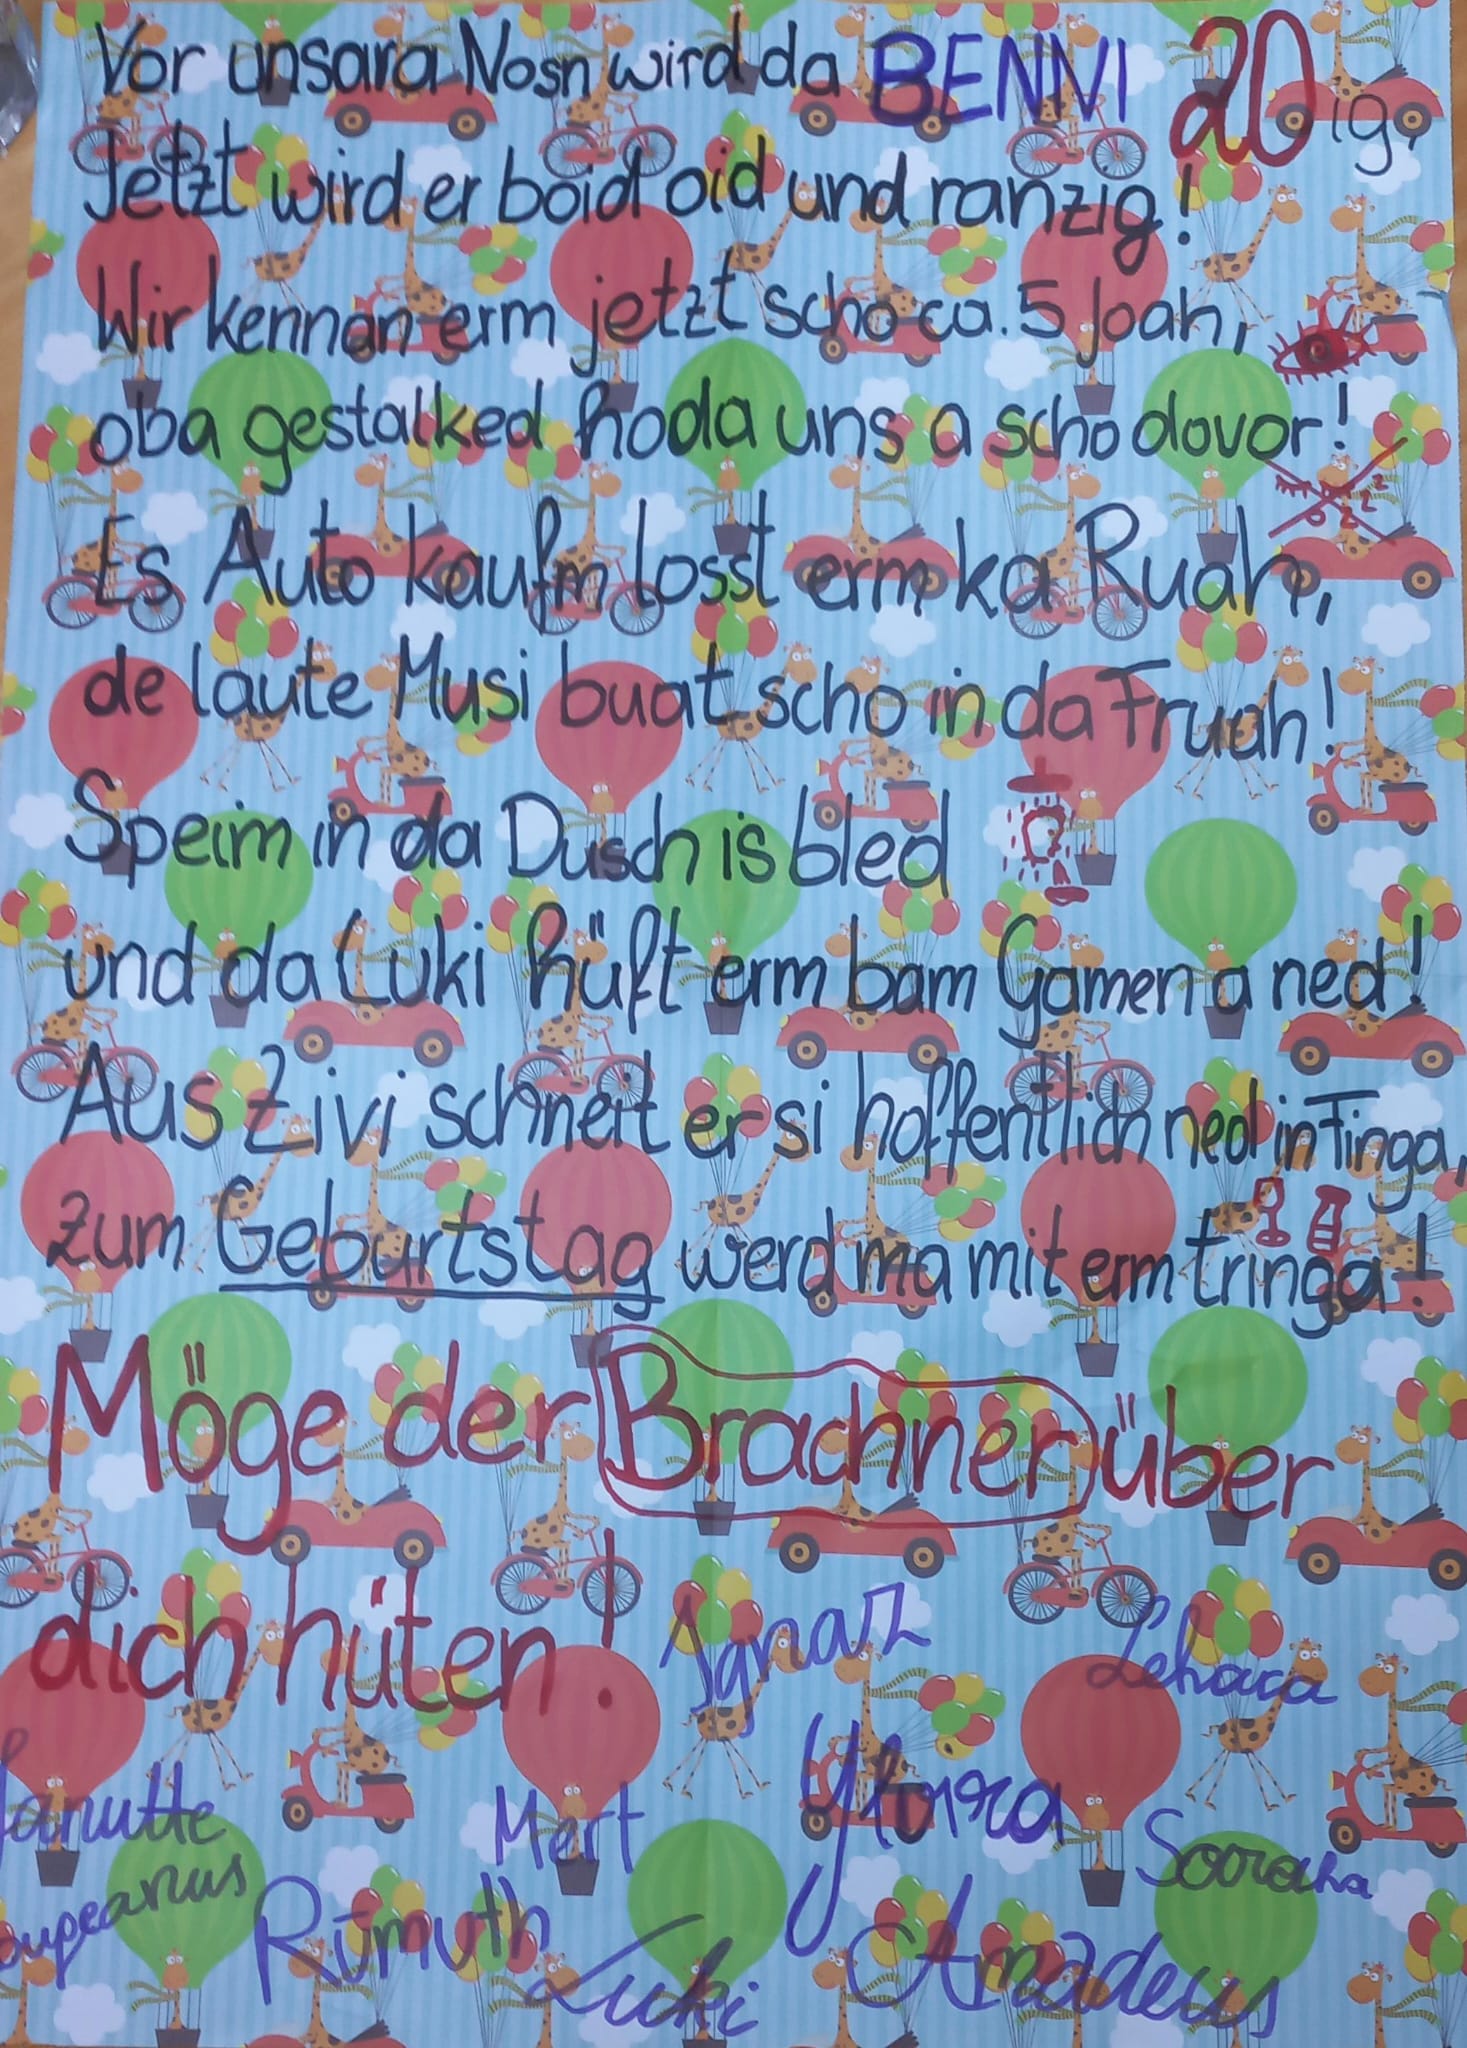 Vor unsara Nosn wird da BENNI 20ig,
Jetzt wird er boid oid und ranzig!
Wir kennan erm jetzt scho ca. 5 Joah,
oba gestalked hoda uns a scho dovor!
Es Auto kaufm losst erm ka Ruah,
de laute Musi buat scho in da Fruah!
Speim in da Dusch is bled
und da Luki hüft erm bam Gamen a ned!
Aus Zivi schneit er si hoffentlich ned in Finga,
zum Geburtstag werd ma mit erm tringa!
Möge der Brachner über
dich hüten!
Ignaz
Mert
Rūmuth
Luki
Amadeus